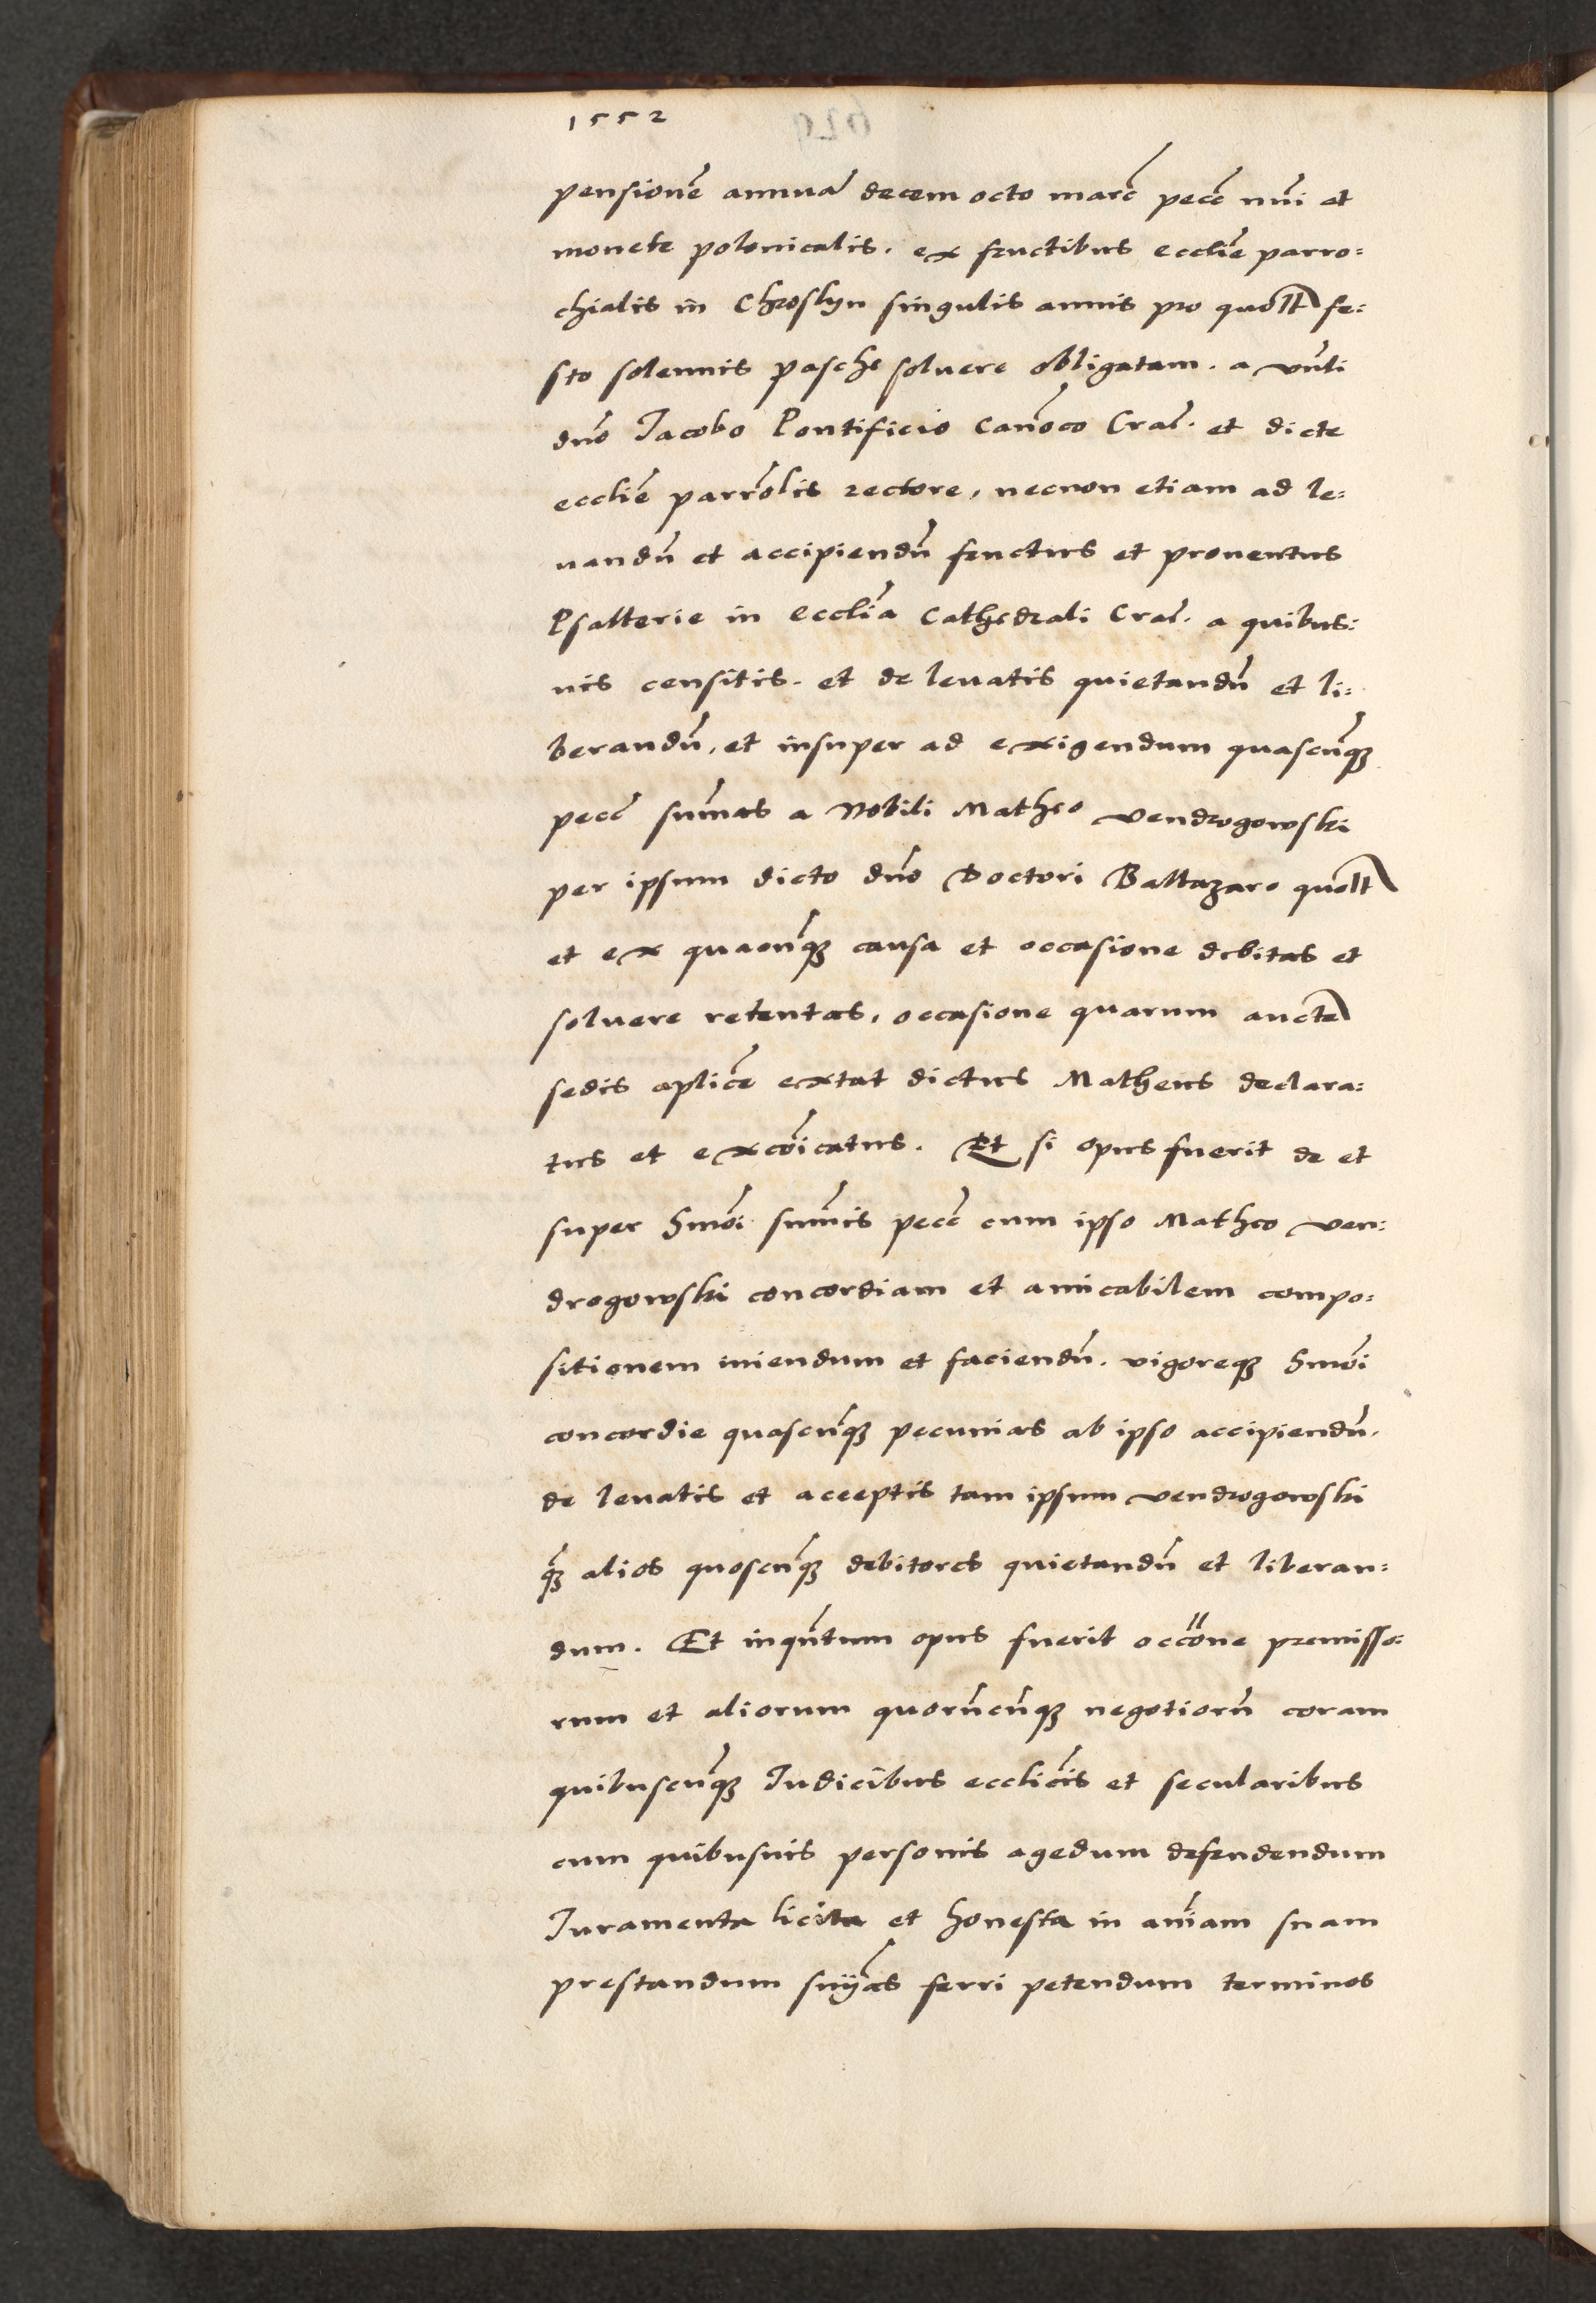 1552
pensionē annuā decem octo marc̄ pecc̄ nūi et
monete polonicalis. ex fructibus ecclīe parro=
chialis in Chroslyn singulis annis pro quoltt fe=
sto solennis pasche soluere obligatam. a vn̄li
dn̄o Iacobo Pontificio Canōco Crac̄. et dicte
ecclīe parrōlis rectore, necnon etiam ad le=
uandū et accipiendū fructus et prouentus
Psalterie in Ecclīa Cathedrali Crac̄. a quibus=
uis censitis. et de leuatis quietandū et li=
berandū, et insuper ad exigendum quascūqꝫ
pecc̄ sūmas a Nobili Matheo Vendrogowski
per ipsum dicto dn̄o Doctori Baltazaro quoltt
et ex quacūqꝫ causa et occasione debitas et
soluere retentas, occasione quarum aucte
sedis aplic̄e extat dictus Matheus declara=
tus et excōicatus. Et si opus fuerit de et
super hmōi sūmis pecc̄ cum ipso Matheo Ven=
drogowski concordiam et amicabilem compo=
sitionem iniendum et faciendū. vigoreqꝫ hmōi
concordie quascūqꝫ pecunias ab ipso accipiendū.
de leuatis et acceptis tam ipsum Vendrogowski
q̄ꝫ alios quoscūqꝫ debitores quietandū et liberan=
dum. Et inqn̄tum opus fuerit occōne premisso=
rum et aliorum quorūcūqꝫ negotiorū coram
quibuscūqꝫ Iudicibus ecclic̄is et secularibus
cum quibusuis personis agedum defendendum
Iuramenta licita et honesta in anīam suam
prestandum snīas ferri petendum terminos